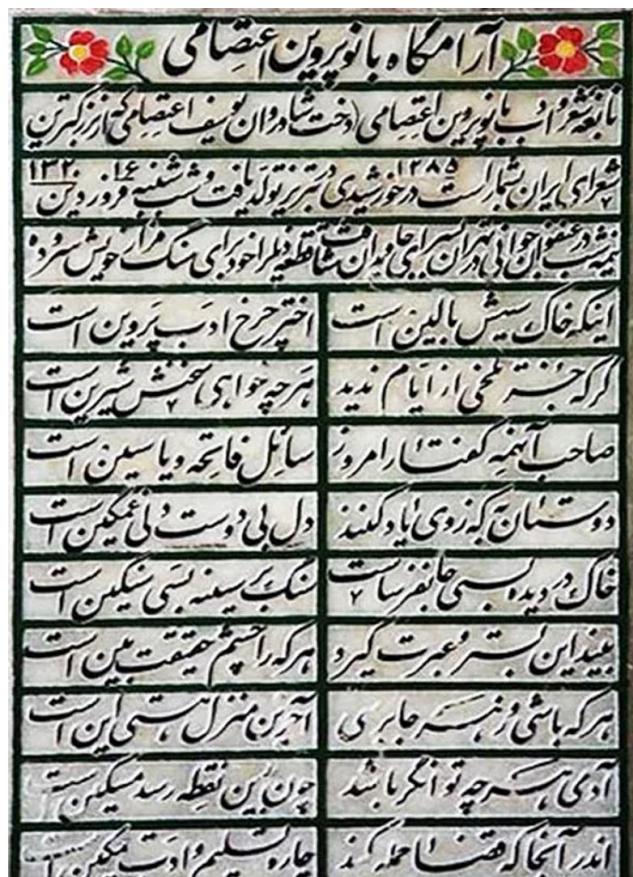 آرامگاه بانو پروین اعتصامی
نابغه شعر و ادب بانو پروین اعتصامی (دخت شادروان یوسف اعتصامی) که از بزرگترین
شعرای ایران بشمار است در ۱۲۸۵ خورشیدی در تبریز تولد یافت و شب شنبه ۱۶ فروردین ۱۳۲۰
نیمه شب در عنفوان جوانی در تهران بسرای جاویدان شتافت قطعه ذیل را خود برای سنگ مزار خویش سروده
اینکه خاک سیهش بالین است اختر چرخ ادب پروین است
گرچه جز تلخی از ایام ندید هر چه خواهی سخنش شیرین است
صاحب آنهمه گفتار امروز سائل فاتحه و یاسین است
دوستان به که ز وی یاد کنند دل بی دوست دلی غمگین است
خاک در دیده بسی جانفرساست سنگ بر سینه بسی سنگین است
بیند این بستر و عبرت گیرد هر که را چشم حقیقت بین است
هر که باشی و ز هر جا برسی آخرین منزل هستی این است
آدمی هر چه توانگر باشد چون بدین نقطه رسد مسکین است
اندر آنجا که قضا حمله کند چاره تسلیم و ادب تمکین است